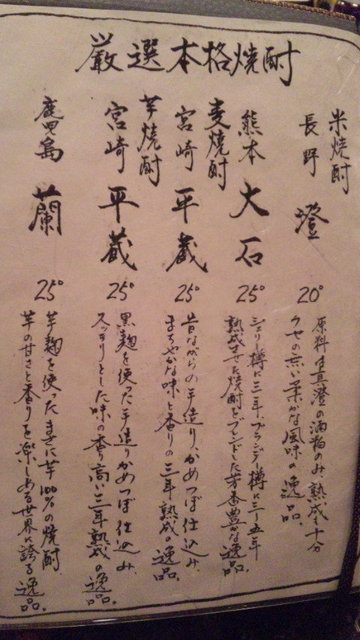 厳選本格焼酎
米焼酎
長野 澄 20°
原料は真澄の酒粕のみ、熟成十分
クセの無い柔かな風味の逸品。
熊本 大石 25°
シェリー樽に三年、ブランデー樽に三～五年
熟成させた焼酎をブレンドした芳香豊かな逸品。
麦焼酎
宮崎 平蔵 25°
昔ながらの手造りかめつぼ仕込み、
まろやかな味と香りの三年熟成の逸品。
芋焼酎
宮崎 平蔵 25°
黒麹を使った手造りかめつぼ仕込み、
スッキリとした味の香り高い三年熟成の逸品。
鹿児島 蘭 25°
芋麹を使ったまさに芋100%の焼酎
芋の甘さと香りを楽しめる世界に誇る逸品。